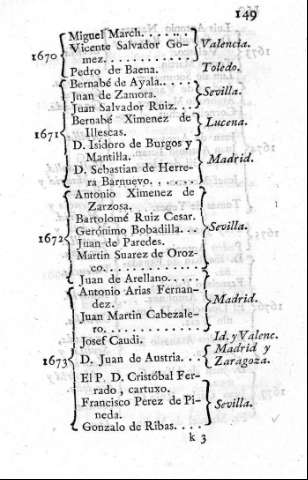 149
Miguel March. . . . . .
Vicente Salvador Go-
mez. . . . . . . . . . . . . . .
Valencia.
1670
Pedro de Baena.
Toledo.
Bernabé de Ayala. . . . .
Juan de Zamora.
Juan Salvador Ruiz. . .
Sevilla.
Bernabé Ximenez de
Illescas.
Lucena.
1671
D. Isidoro de Burgos y
Mantilla.
D. Sebastian de Herre-
ra Barnuevo. . . . . . .
Madrid.
Antonio Ximenez de
Zarzosa.
Bartolomé Ruiz Cesar.
Gerónimo Bobadilla. . .
Sevilla.
1672
Juan de Paredes.
Martin Suarez de Oroz-
co. . . . . . . . . . . . . . .
Juan de Arellano. . . . .
Antonio Arias Fernan-
dez.
Madrid.
Juan Martin Cabezale-
ro. . . . . . . . . . . . . . .
Josef Caudi.
Id. y Valenc.
1673
D. Juan de Austria. . .
Madrid y
Zaragoza.
El P. D. Cristóbal Fer-
rado, cartuxo.
Francisco Perez de Pi-
neda.
Sevilla.
Gonzalo de Ribas. . . .
k 3